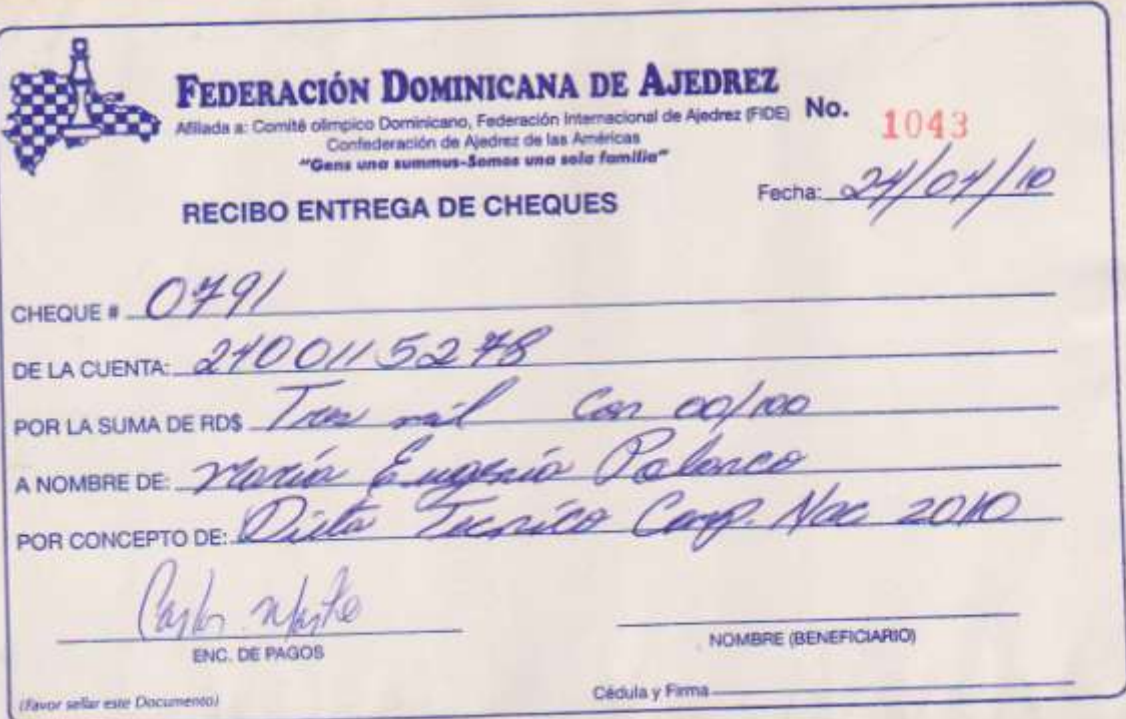 FEDERACIÓN DOMINICANA DE AJEDREZ
Afiliada a: Comité olímpico Dominicano, Federación Internacional de Ajedrez (FIDE) No. 1043
Confederación de Ajedrez de las Américas
"Gens una summus-Somos una sola familia"
RECIBO ENTREGA DE CHEQUES
Fecha: 24/04/10
CHEQUE # 0791
DE LA CUENTA: 2400115278
POR LA SUMA DE RD$ Tres mil Con 00/100
A NOMBRE DE: María Eugenia Polanco
POR CONCEPTO DE: Dieta Tecnico Camp. Nac 2010
ENC. DE PAGOS
NOMBRE (BENEFICIARIO)
(Favor sellar este Documento)
Cédula y Firma